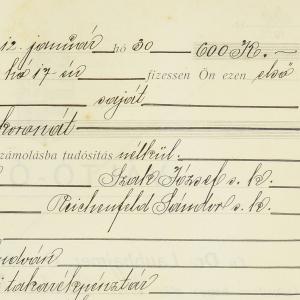 12. január hó 30 600 K.
hó 17-én fizessen Ön ezen első
saját
koronát
számolásba tudósítás nélkül.
Szak József s. k.
Reichenfeld Sándor s. k.
takarékpénztár